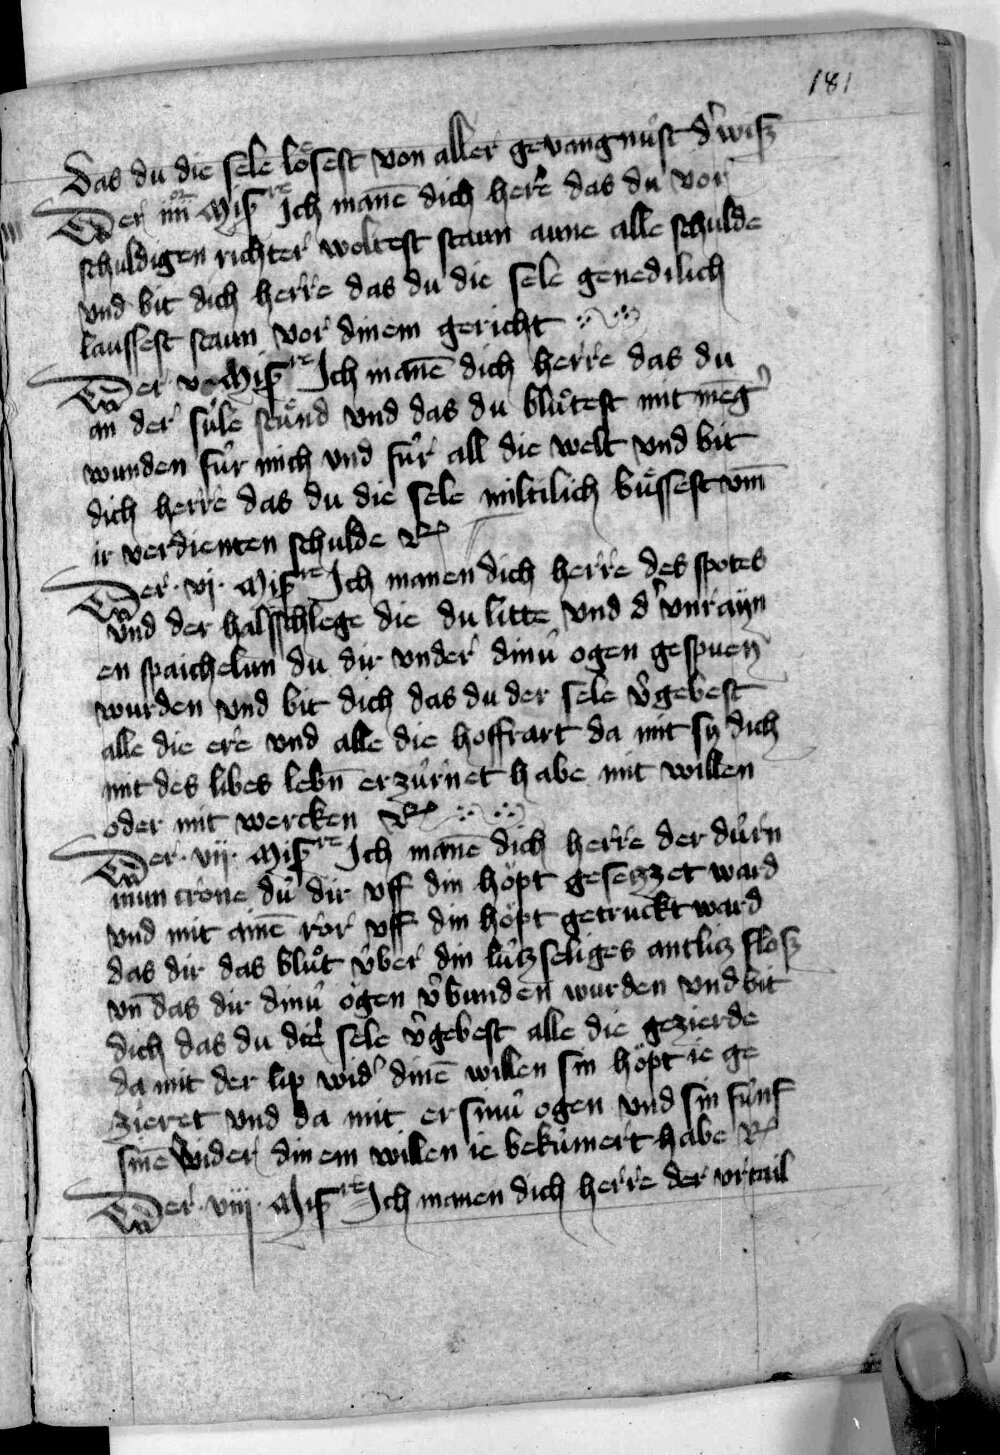 181
das du die sele loͤsest von aller gevangnuͤst d' wisz
Der iiii or Mis re Ich manē dich herre das du vor
schuldigen richter woltest staun aune alle schulde
vnd bit dich herre das du die sele genedilich
laussest staun vor dinem gericht
Der · v · Mis re Ich manē dich herre das du
an der sûle stuͤnd vnd das du bluͦtest mit meng'
wunden fûr mich vnd fûr all die welt vnd bit
dich herre das du die sele miltilich buͤssest vm̄
ir verdienten schulde R
Der · vi · Mis re Ich manen dich herre des spotes
vnd der halsschlege die du litte vnd d' vnrayn
en spaichelun du dir vnder dinû ogen gespuen
wurden vnd bit dich das du der sele v'gebest
alle die ere vnd alle die hoffrart da mit sy dich
mit des libes lebn̄ erzûrnet habe mit willen
oder mit wercken R
Der · vii · Mis re Ich manē dich herre der dûrn
inun crone dû dir vff din hoͤpt gesetzzet ward
vnd mit ainē ror vff din hoͤpt getruckt ward
das dir das bluͦt vͤber din lûtzseliges antlitz flosz
vn̄ das dir dinû oͤgen v'bunden wurden vnd bit
dich das du der sele v'gebest alle die gezierde
da mit der lip wid' dinē willen sin hoͤpt ie ge
zieret vnd da mit er sinû ogen vnd sin fûnf
sinē wider dinem willen ie bekûmert habe R
Der · viii · Mis re Ich manen dich herre der vrtail